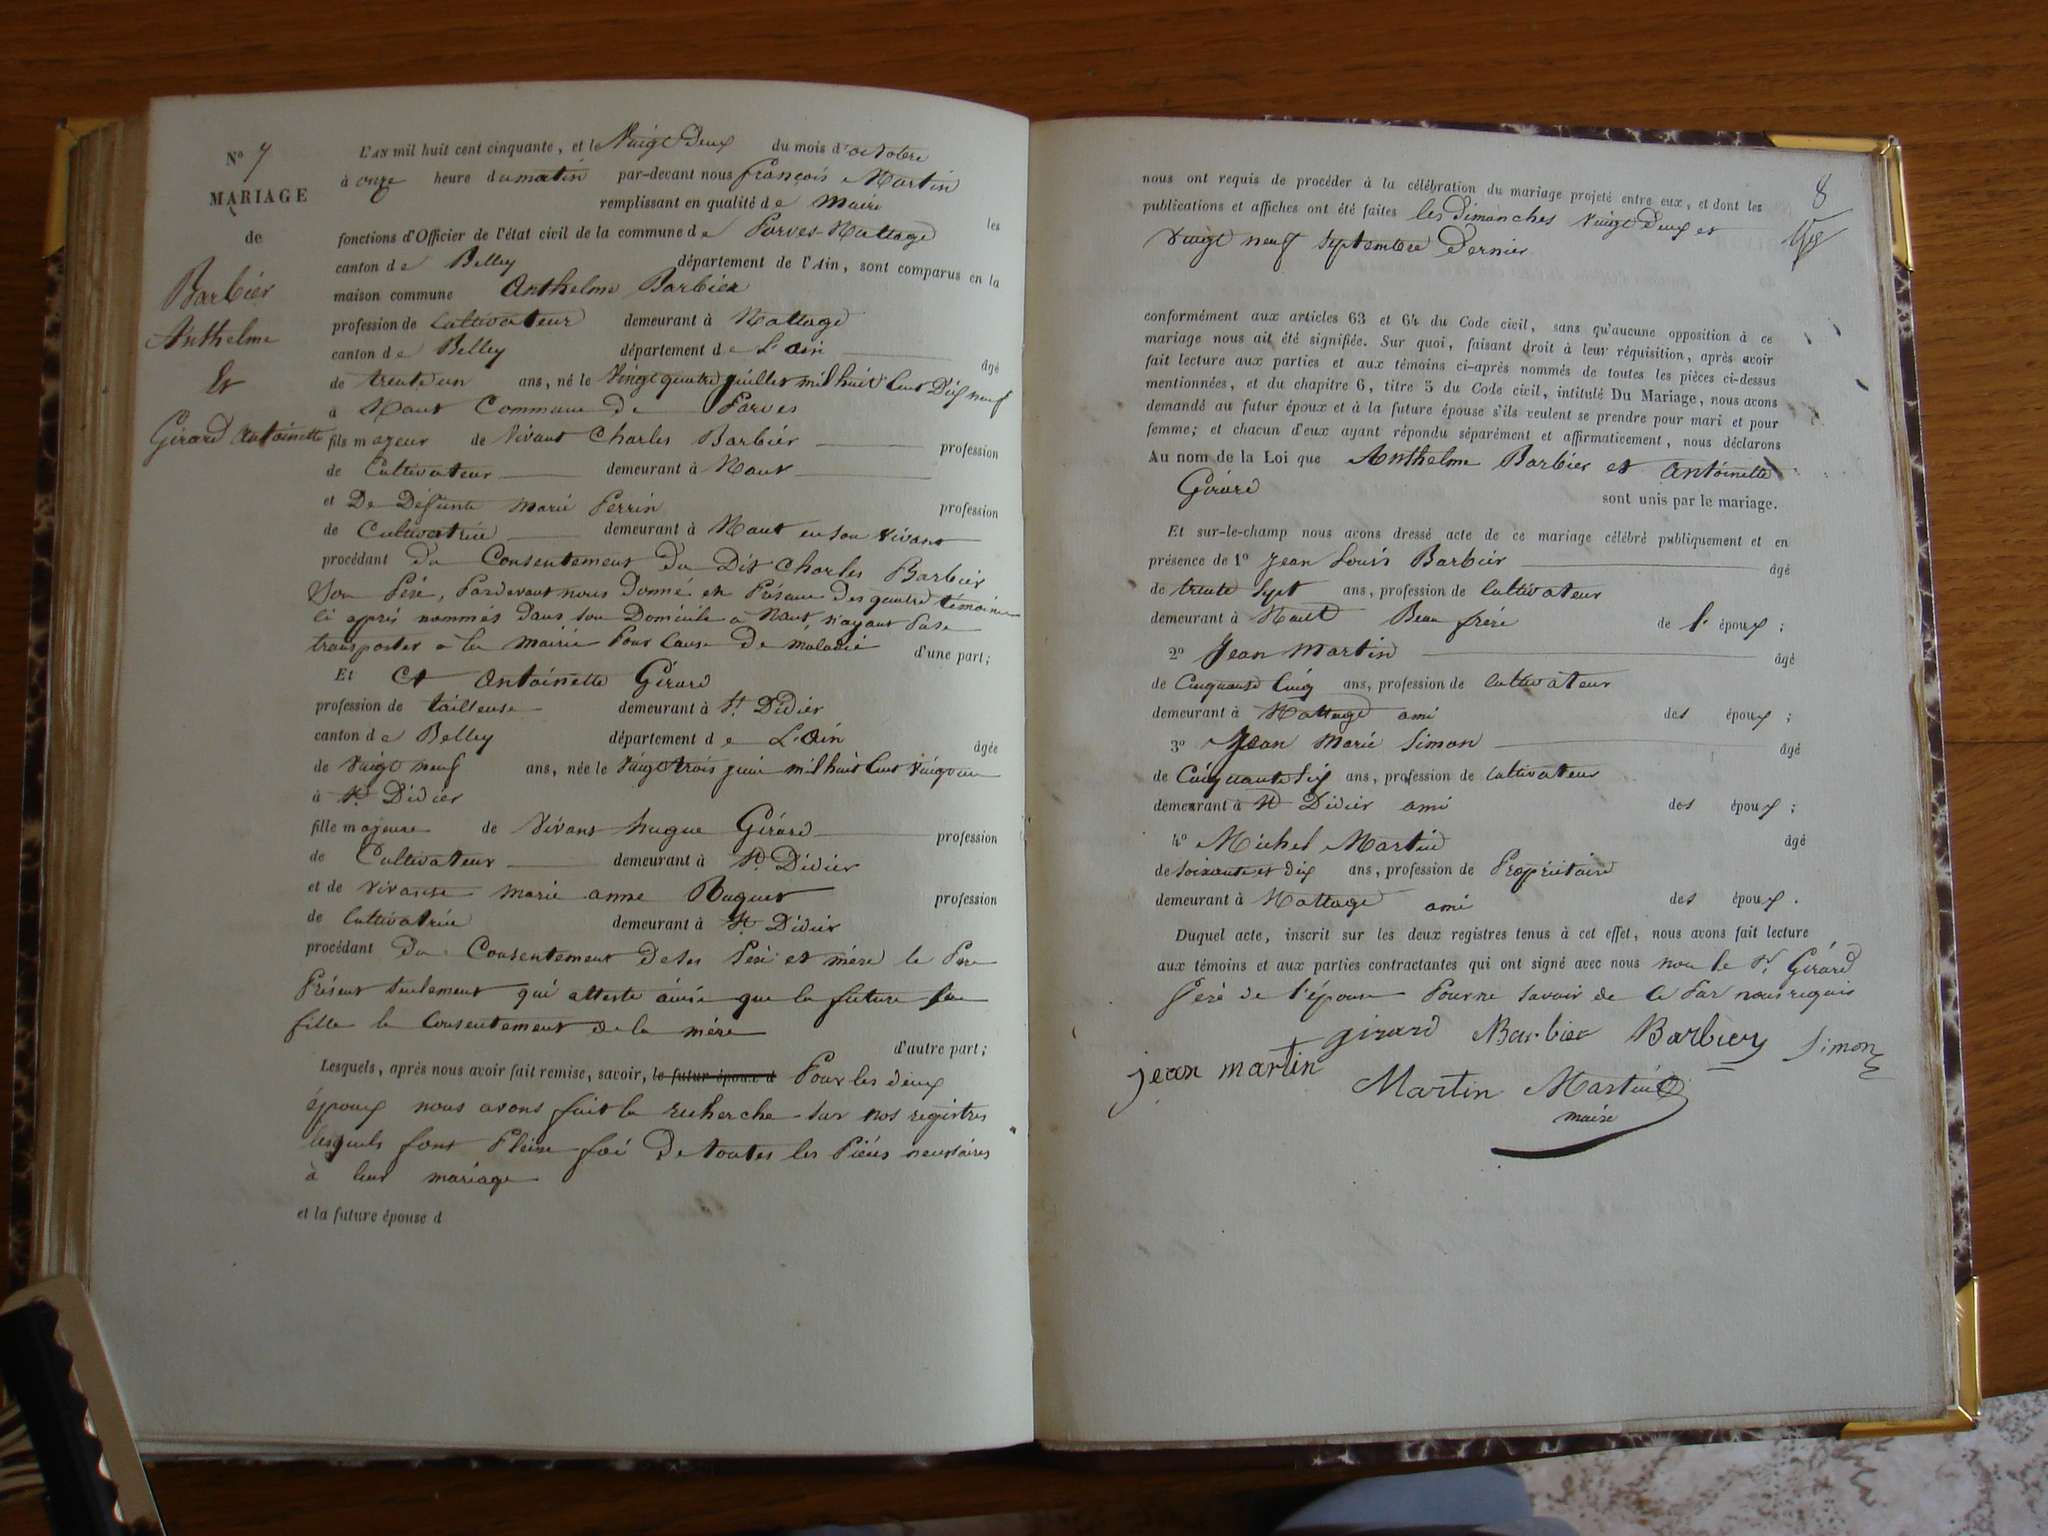 N° 7
MARIAGE
de
Barbier
Anthelme
Et
Girard Antoinette
L'AN mil huit cent cinquante, et le Vingt Deux du mois d'octobre
à onze heure du matin par-devant nous françois Martin
remplissant en qualité de Maire les
fonctions d'Officier de l'état civil de la commune de Parves-Nattage
canton de Belley département de l'Ain, sont comparus en la
maison commune Anthelme Barbier
profession de Cultivateur demeurant à Nattage
canton de Belley département de L'Ain âgé
de trente un ans, né le Vingt quatre juillet mil huit Cent Dix neuf
à Nant Commune de Parves
fils majeur de Vivant Charles Barbier profession
de Cultivateur demeurant à Nant
et De Défunte Marie Perrin profession
de Cultivatrice demeurant à Nant en son vivant
procédant du Consentement du Dit Charles Barbier
Son Père, Pardevant nous Donné en Présence des quatre témoins
ci après nommés dans son Domicile à Nant n'ayant Pu se
transporter à la mairie Pour Cause De maladie d'une part;
Et Et Antoinette Girard
profession de tailleuse demeurant à St Didier
canton de Belley département de L'Ain âgée
de Vingt neuf ans, née le Vingt trois juin mil huit Cent Vingt un
à St Didier
fille majeure de Vivant hugue Girard profession
de Cultivateur demeurant à St Didier
et de vivante marie anne Buquet profession
de Cultivatrice demeurant à St Didier
procédant du Consentement de ses Père et mère le Père
Présent seulement qui atteste ainsi que la future sa
fille le Consentement de la mère
d'autre part;
Lesquels, après nous avoir fait remise, savoir, le futur époux d Pour les deux
époux nous avons fait la recherche sur nos registres
lesquels font Pleine foi De toutes les Pièces nécessaires
à leur mariage
et la future épouse d
8
nous ont requis de procéder à la célébration du mariage projeté entre eux, et dont les
publications et affiches ont été faites les Dimanches Vingt Deux et
Vingt neuf Septembre Dernier
conformément aux articles 63 et 64 du Code civil, sans qu'aucune opposition à ce
mariage nous ait été signifiée. Sur quoi, faisant droit à leur réquisition, après avoir
fait lecture aux parties et aux témoins ci-après nommés de toutes les pièces ci-dessus
mentionnées, et du chapitre 6, titre 5 du Code civil, intitulé Du Mariage, nous avons
demandé au futur époux et à la future épouse s'ils veulent se prendre pour mari et pour
femme; et chacun d'eux ayant répondu séparément et affirmativement, nous déclarons
Au nom de la Loi que Anthelme Barbier et Antoinette
Girard sont unis par le mariage.
Et sur-le-champ nous avons dressé acte de ce mariage célébré publiquement et en
présence de 1° Jean Louis Barbier âgé
de trente Sept ans, profession de Cultivateur
demeurant à Nant Beau frère de l' époux;
2° Jean Martin âgé
de Cinquante Cinq ans, profession de Cultivateur
demeurant à Nattage ami des époux;
3° Jean Marie Simon âgé
de Cinquante Six ans, profession de Cultivateur
demeurant à St Didier ami des époux;
4° Michel Martin âgé
de soixante et dix ans, profession de Propriétaire
demeurant à Nattage ami des époux.
Duquel acte, inscrit sur les deux registres tenus à cet effet, nous avons fait lecture
aux témoins et aux parties contractantes qui ont signé avec nous non le Sr Girard
Père de l'épouse Pour ne savoir de Ce Par nous requis
girard Barbier Barbier Simon
jean martin
Martin Martin
maire